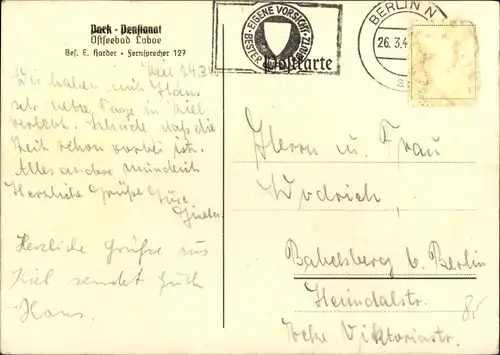 Park - Pensionat
Ostseebad Laboe
Bes. E. Harder • Fernsprecher 127
EIGENE VORSICHT
BESTER
Postkarte
BERLIN N
26.3.4
Kiel 24.3.
Wir haben mit Hans
sehr nette Tage in Kiel
verlebt. Schade daß die
Zeit schon vorbei ist.
Alles andere mündlich
Herzliche Grüße
Herzliche Grüße aus
Kiel sendet Euch
Hans.
Herrn u. Frau
Wodrich,
Babelsberg b. Berlin
Heimdalstr.
Ecke Viktoriastr.